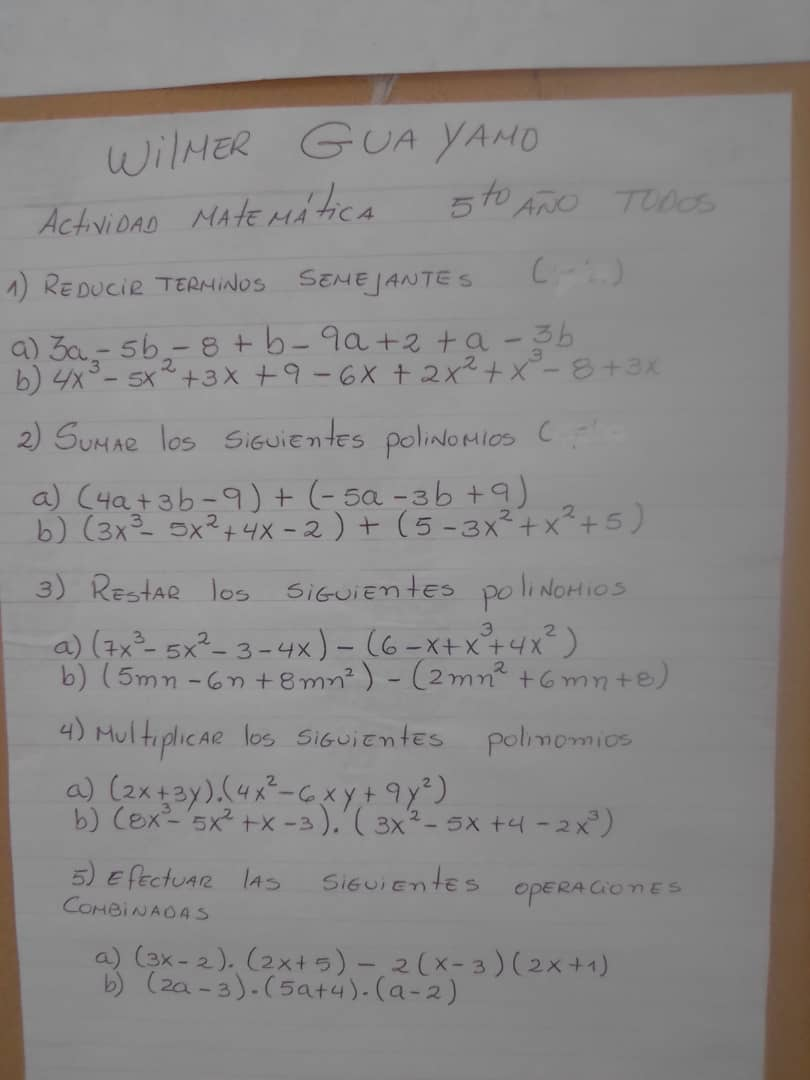 WILMER GUAYAMO
ACTIVIDAD MATEMÁTICA 5to AÑO TODOS
1) REDUCIR TERMINOS SEMEJANTES
a) 3a - 5b - 8 + b - 9a + 2 + a - 3b
b) 4x³ - 5x² + 3x + 9 - 6x + 2x² + x³ - 8 + 3x
2) SUMAR los SIGUIENTES POLINOMIOS
a) (4a + 3b - 9) + (- 5a - 3b + 9)
b) (3x³ - 5x² + 4x - 2) + (5 - 3x² + x² + 5)
3) RESTAR los SIGUIENTES POLINOMIOS
a) (7x³ - 5x² - 3 - 4x) - (6 - x + x³ + 4x²)
b) (5mn - 6n + 8mn²) - (2mn² + 6mn + 8)
4) MultiplicAR los SIGUIENTES polinomios
a) (2x + 3y).(4x² - 6xy + 9y²)
b) (8x³ - 5x² + x - 3).(3x² - 5x + 4 - 2x³)
5) EFECTUAR LAS SIGUIENTES OPERACIONES
COMBINADAS
a) (3x - 2).(2x + 5) - 2(x - 3)(2x + 1)
b) (2a - 3).(5a + 4).(a - 2)